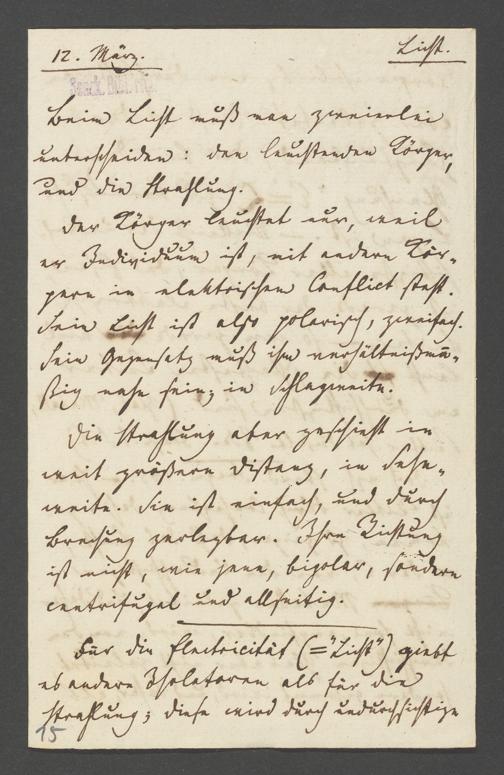 12. März.
Licht.
Senck. Bibl. Ffm.
Beim Licht muß man zweierlei
unterscheiden: den leuchtenden Körper,
und die Strahlung.
Der Körper leuchtet nur, weil
er Individuum ist, mit andern Kör-
pern in elektrischem Conflict steht.
Sein Licht ist also polarisch, zweifach.
Sein Gegensatz muß ihm verhältnißmä-
ßig nahe sein; in Schlagweite.
Die Strahlung aber geschieht in
weit größern Distanz, in Seh-
weite. Sie ist einfach, und durch
Brechung zerlegbar. Ihre Richtung
ist nicht, wie jene, bipolar, sondern
centrifugal und allseitig.
Für die Electricität (="Licht") giebt
es andere Isolatoren als für die
Strahlung; diese wird durch undurchsichtige
15